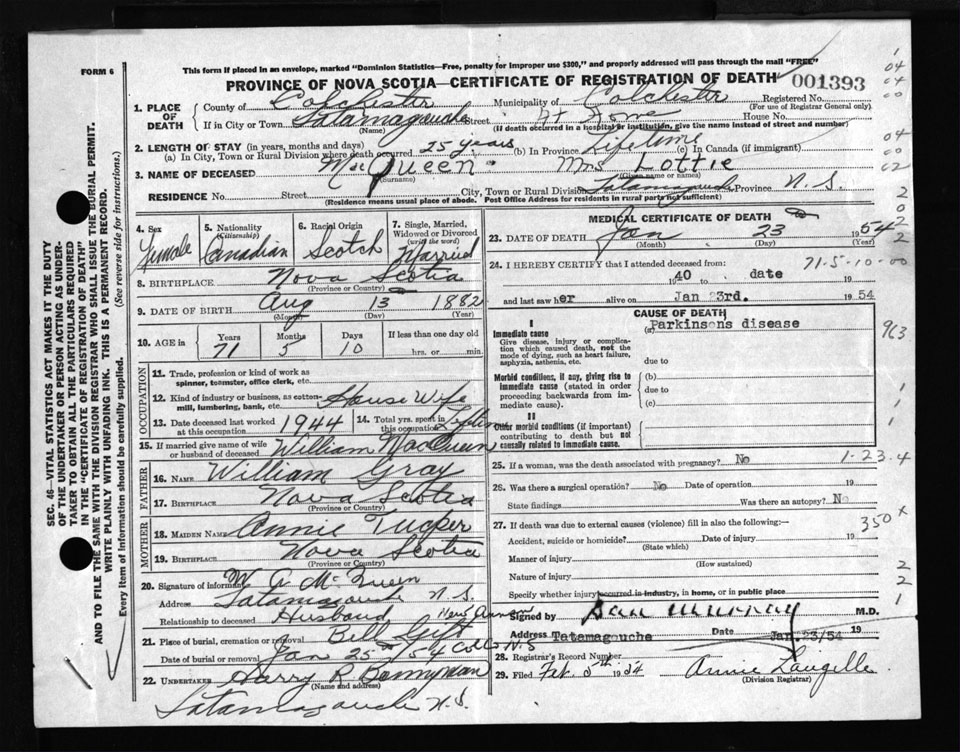 FORM 6
This form if placed in an envelope, marked "Dominion Statistics—Free, penalty for improper use $300," and properly addressed will pass through the mail "FREE"
PROVINCE OF NOVA SCOTIA—CERTIFICATE OF REGISTRATION OF DEATH 001393
SEC. 46—VITAL STATISTICS ACT MAKES IT THE DUTY
OF THE UNDERTAKER OR PERSON ACTING AS UNDER-
TAKER TO OBTAIN ALL THE PARTICULARS REQUIRED
IN THE "CERTIFICATE OF REGISTRATION OF DEATH"
AND TO FILE THE SAME WITH THE DIVISION REGISTRAR WHO SHALL ISSUE THE BURIAL PERMIT.
WRITE PLAINLY WITH UNFADING INK. THIS IS A PERMANENT RECORD.
Every item of information should be carefully supplied. (See reverse side for instructions.)
1. PLACE OF DEATH
County of Colchester Municipality of Colchester Registered No.
(For use of Registrar General only)
If in City or Town Tatamagouche Street At Home House No.
(Name) (If death occurred in a hospital or institution, give the name instead of street and number)
2. LENGTH OF STAY (in years, months and days)
(a) In City, Town or Rural Division where death occurred 25 years (b) In Province Lifetime (c) In Canada (if immigrant)
3. NAME OF DECEASED MacQueen Mrs Lottie
(Surname) (Given name or names)
RESIDENCE No. Street City, Town or Rural Division Tatamagouche Province N.S.
(Residence means usual place of abode. Post Office Address for residents in rural parts not sufficient)
4. Sex
Female
5. Nationality
(Citizenship)
Canadian
6. Racial Origin
Scotch
7. Single, Married,
Widowed or Divorced
(write the word)
Married
8. BIRTHPLACE Nova Scotia
(Province or Country)
9. DATE OF BIRTH Aug 13 1882
(Month) (Day) (Year)
10. AGE in Years Months Days If less than one day old
71 5 10 hrs. or min.
OCCUPATION
11. Trade, profession or kind of work as
spinner, teamster, office clerk, etc.
12. Kind of industry or business, as cotton-
mill, lumbering, bank, etc. House Wife
13. Date deceased last worked
at this occupation 1944
14. Total yrs. spent in
this occupation
15. If married give name of wife
or husband of deceased William MacQueen
FATHER
16. NAME William Gray
17. BIRTHPLACE Nova Scotia
(Province or Country)
MOTHER
18. MAIDEN NAME Annie Tupper
19. BIRTHPLACE Nova Scotia
(Province or Country)
20. Signature of informant W A McQueen
Address Tatamagouche N.S.
Relationship to deceased Husband
21. Place of burial, cremation or removal Bell
Date of burial or removal Jan 25th 54 Col Co N.S
22. UNDERTAKER Harry R Bonnyman
(Name and address)
Tatamagouche N.S.
MEDICAL CERTIFICATE OF DEATH
23. DATE OF DEATH Jan 23 1954
(Month) (Day) (Year)
24. I HEREBY CERTIFY that I attended deceased from: 71-5-10-00
1940 to date 19
and last saw her alive on Jan 23rd. 1954
CAUSE OF DEATH
I
Immediate cause
Give disease, injury or complica-
tion which caused death, not the
mode of dying, such as heart failure,
asphyxia, asthenia, etc.
(a) Parkinsons disease
due to
Morbid conditions, if any, giving rise to
immediate cause (stated in order
proceeding backwards from im-
mediate cause).
(b)
due to
(c)
II
Other morbid conditions (if important)
contributing to death but not
causally related to immediate cause.
25. If a woman, was the death associated with pregnancy? No 1-23-4
26. Was there a surgical operation? No Date of operation 19
State findings Was there an autopsy? No
27. If death was due to external causes (violence) fill in also the following:—
Accident, suicide or homicide? Date of injury 19
(State which)
Manner of injury
(How sustained)
Nature of injury
Specify whether injury occurred in industry, in home, or in public place
Signed by Dan Murray M.D.
Address Tatamagouche Jan. 23/54 19
28. Registrar's Record Number
29. Filed Feb. 5th 1954 Annie Langille
(Division Registrar)
04
04
00
04
00
02
2
0
2
2
963
1
1
1
350 x
2
2
1